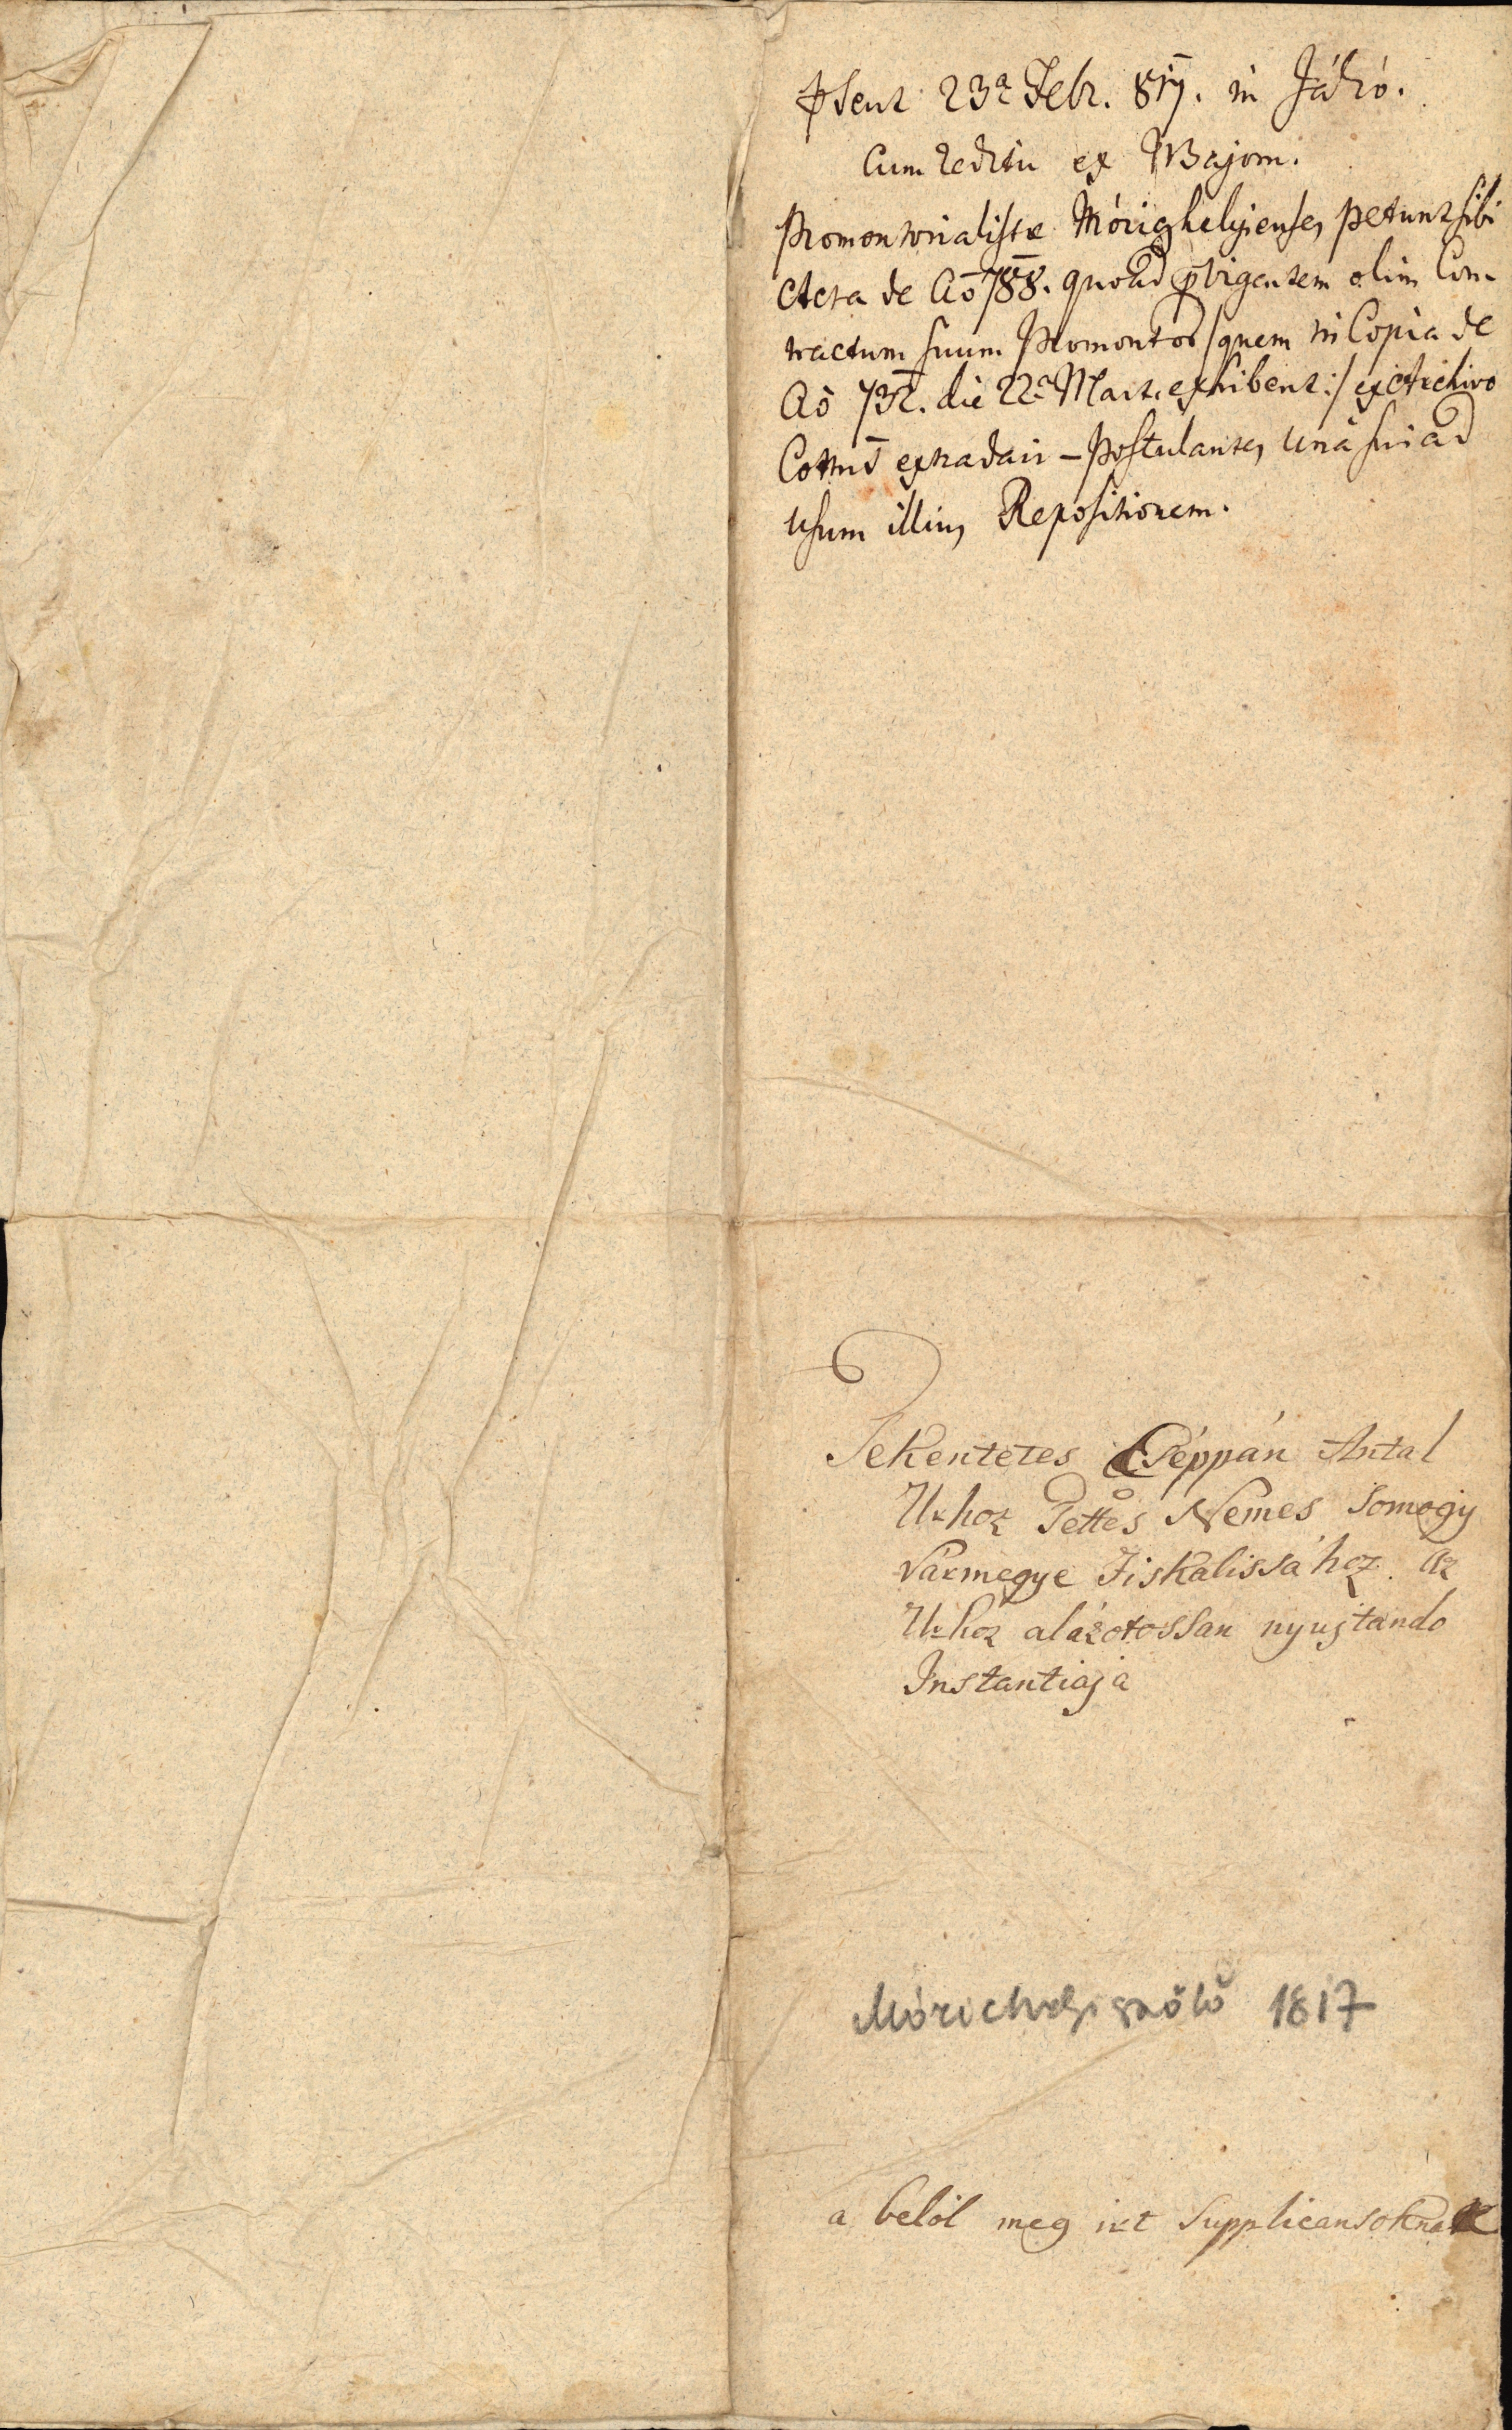 Psent 23a Febr. 817. in Jákó.
Cum reditu ex NBajom.
Promontorialistæ Mórighelyienses petunt sibi
Acta de Aō 788. quoad pvigentem olim Con-
tractum suum Promontor /quem in Copia de
Aō 732. die 22a Mart. exhibent :/ ex Archivo
Cottus extradari – Postulantes unâ sui ad
Usum illius Repositionem.
Tekentetes Cséppán Antal
Urhoz Tettes Nemes Somogy
Vármegye Fiskalissához az
Urhoz alázotossan nyujtando
Instantiaja
Mórichelyi szőlő 1817
a belöl meg irt Supplicansoknak